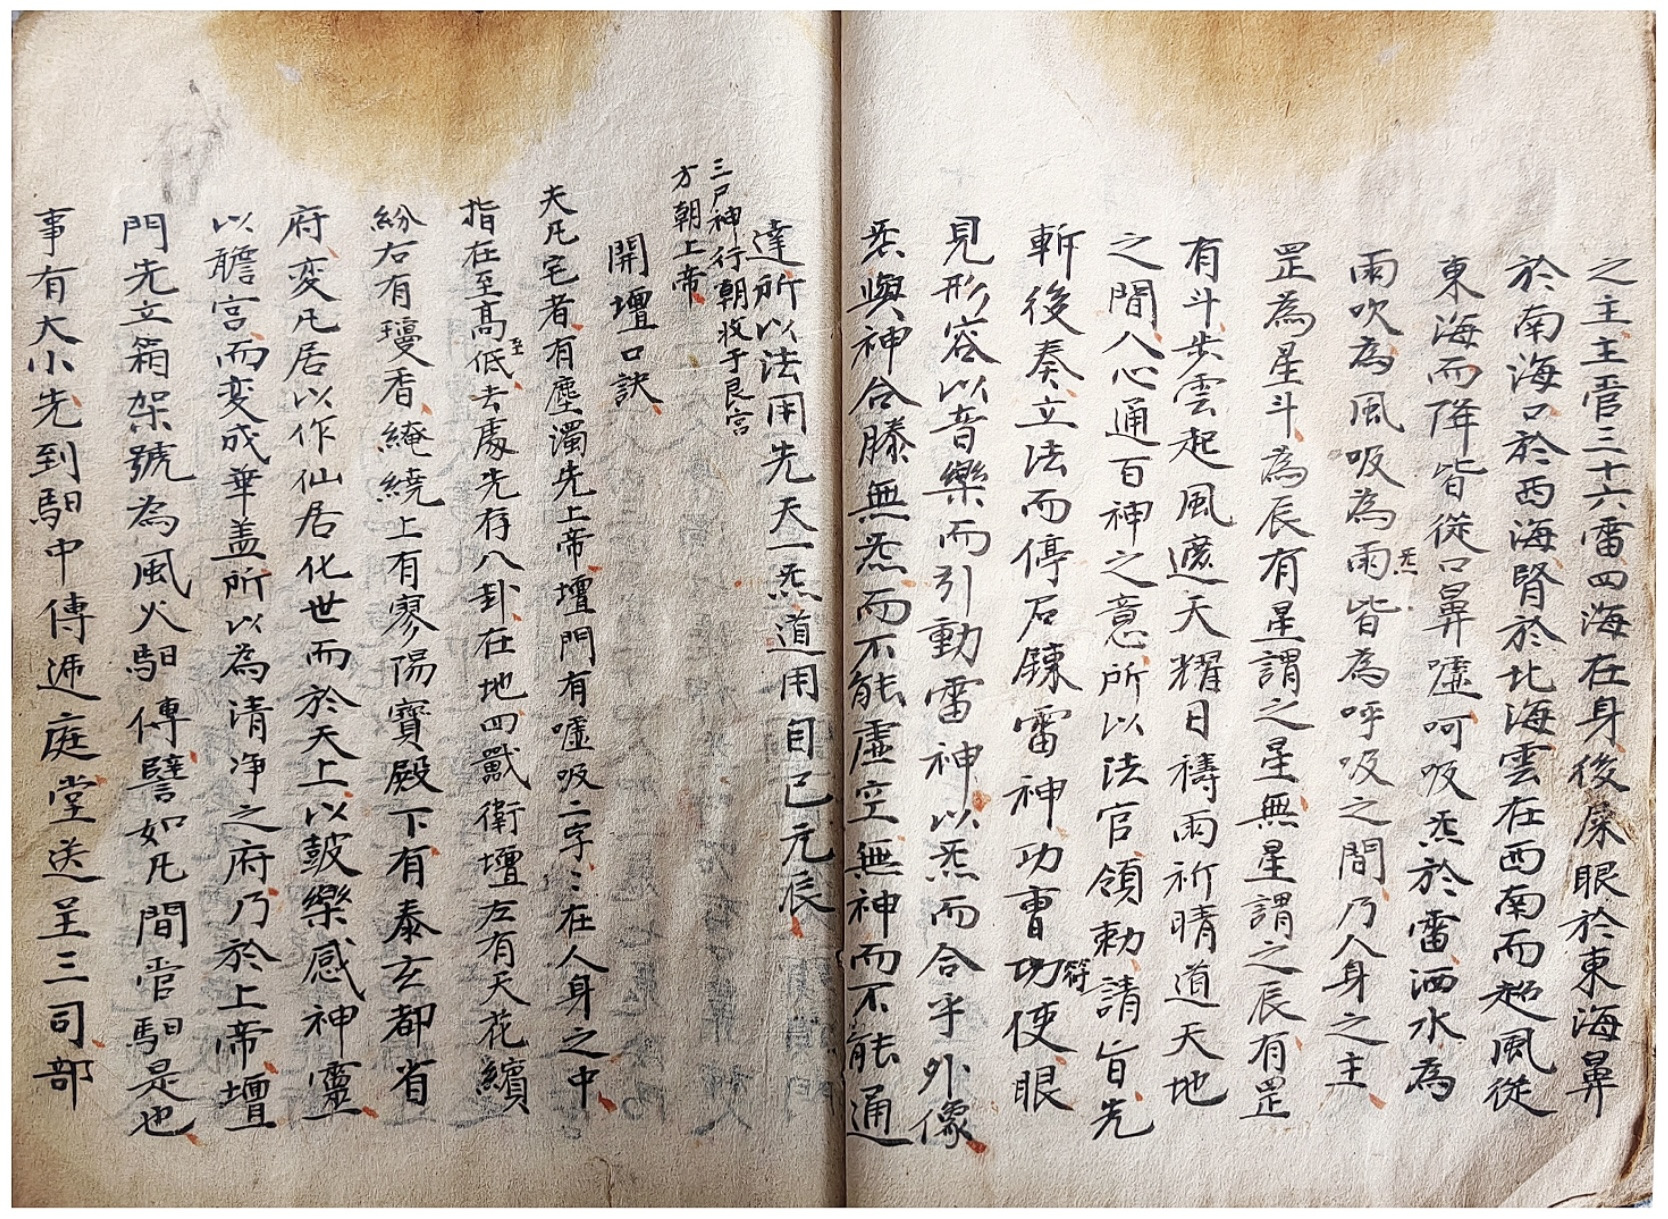 之主主管三十六雷四海在身後屎眼於東海鼻
於南海口於西海腎於北海雲在西南而起風從
東海而降皆從口鼻噓呵吸炁於雷洒水為
雨吹為風吸為雨炁皆為呼吸之間乃人身之主
罡為星斗為辰有星謂之星無星謂之辰有罡
有斗步雲起風遮天耀日禱雨祈晴道天地
之間人心通百神之意所以法官領勅請旨先
斬後奏立法而停居鍊雷神功曹符使眼
見形容以音樂而引動雷神以炁而合乎外像
炁與神合勝無炁而不能虛空無神而不能通
達所以法用先天一炁道用自己元辰
三尸神行朝收于艮宮
方朝上帝
開壇口訣
夫凡宅者有塵濁先上帝壇門有噓吸二字〻在人身之中
指在至高至低去處先存八卦在地四獸衛壇左有天花繽
紛右有瓊香繞上有寥陽寶殿下有泰玄都省
府変凡居以作仙居化世而於天上以皷樂感神靈
以贍宮而变成華盖所以為清净之府乃於上帝壇
門先立箱架號為風火馹傳譬如凡間管馹是也
事有大小先到馹中傳逓庭堂送呈三司部